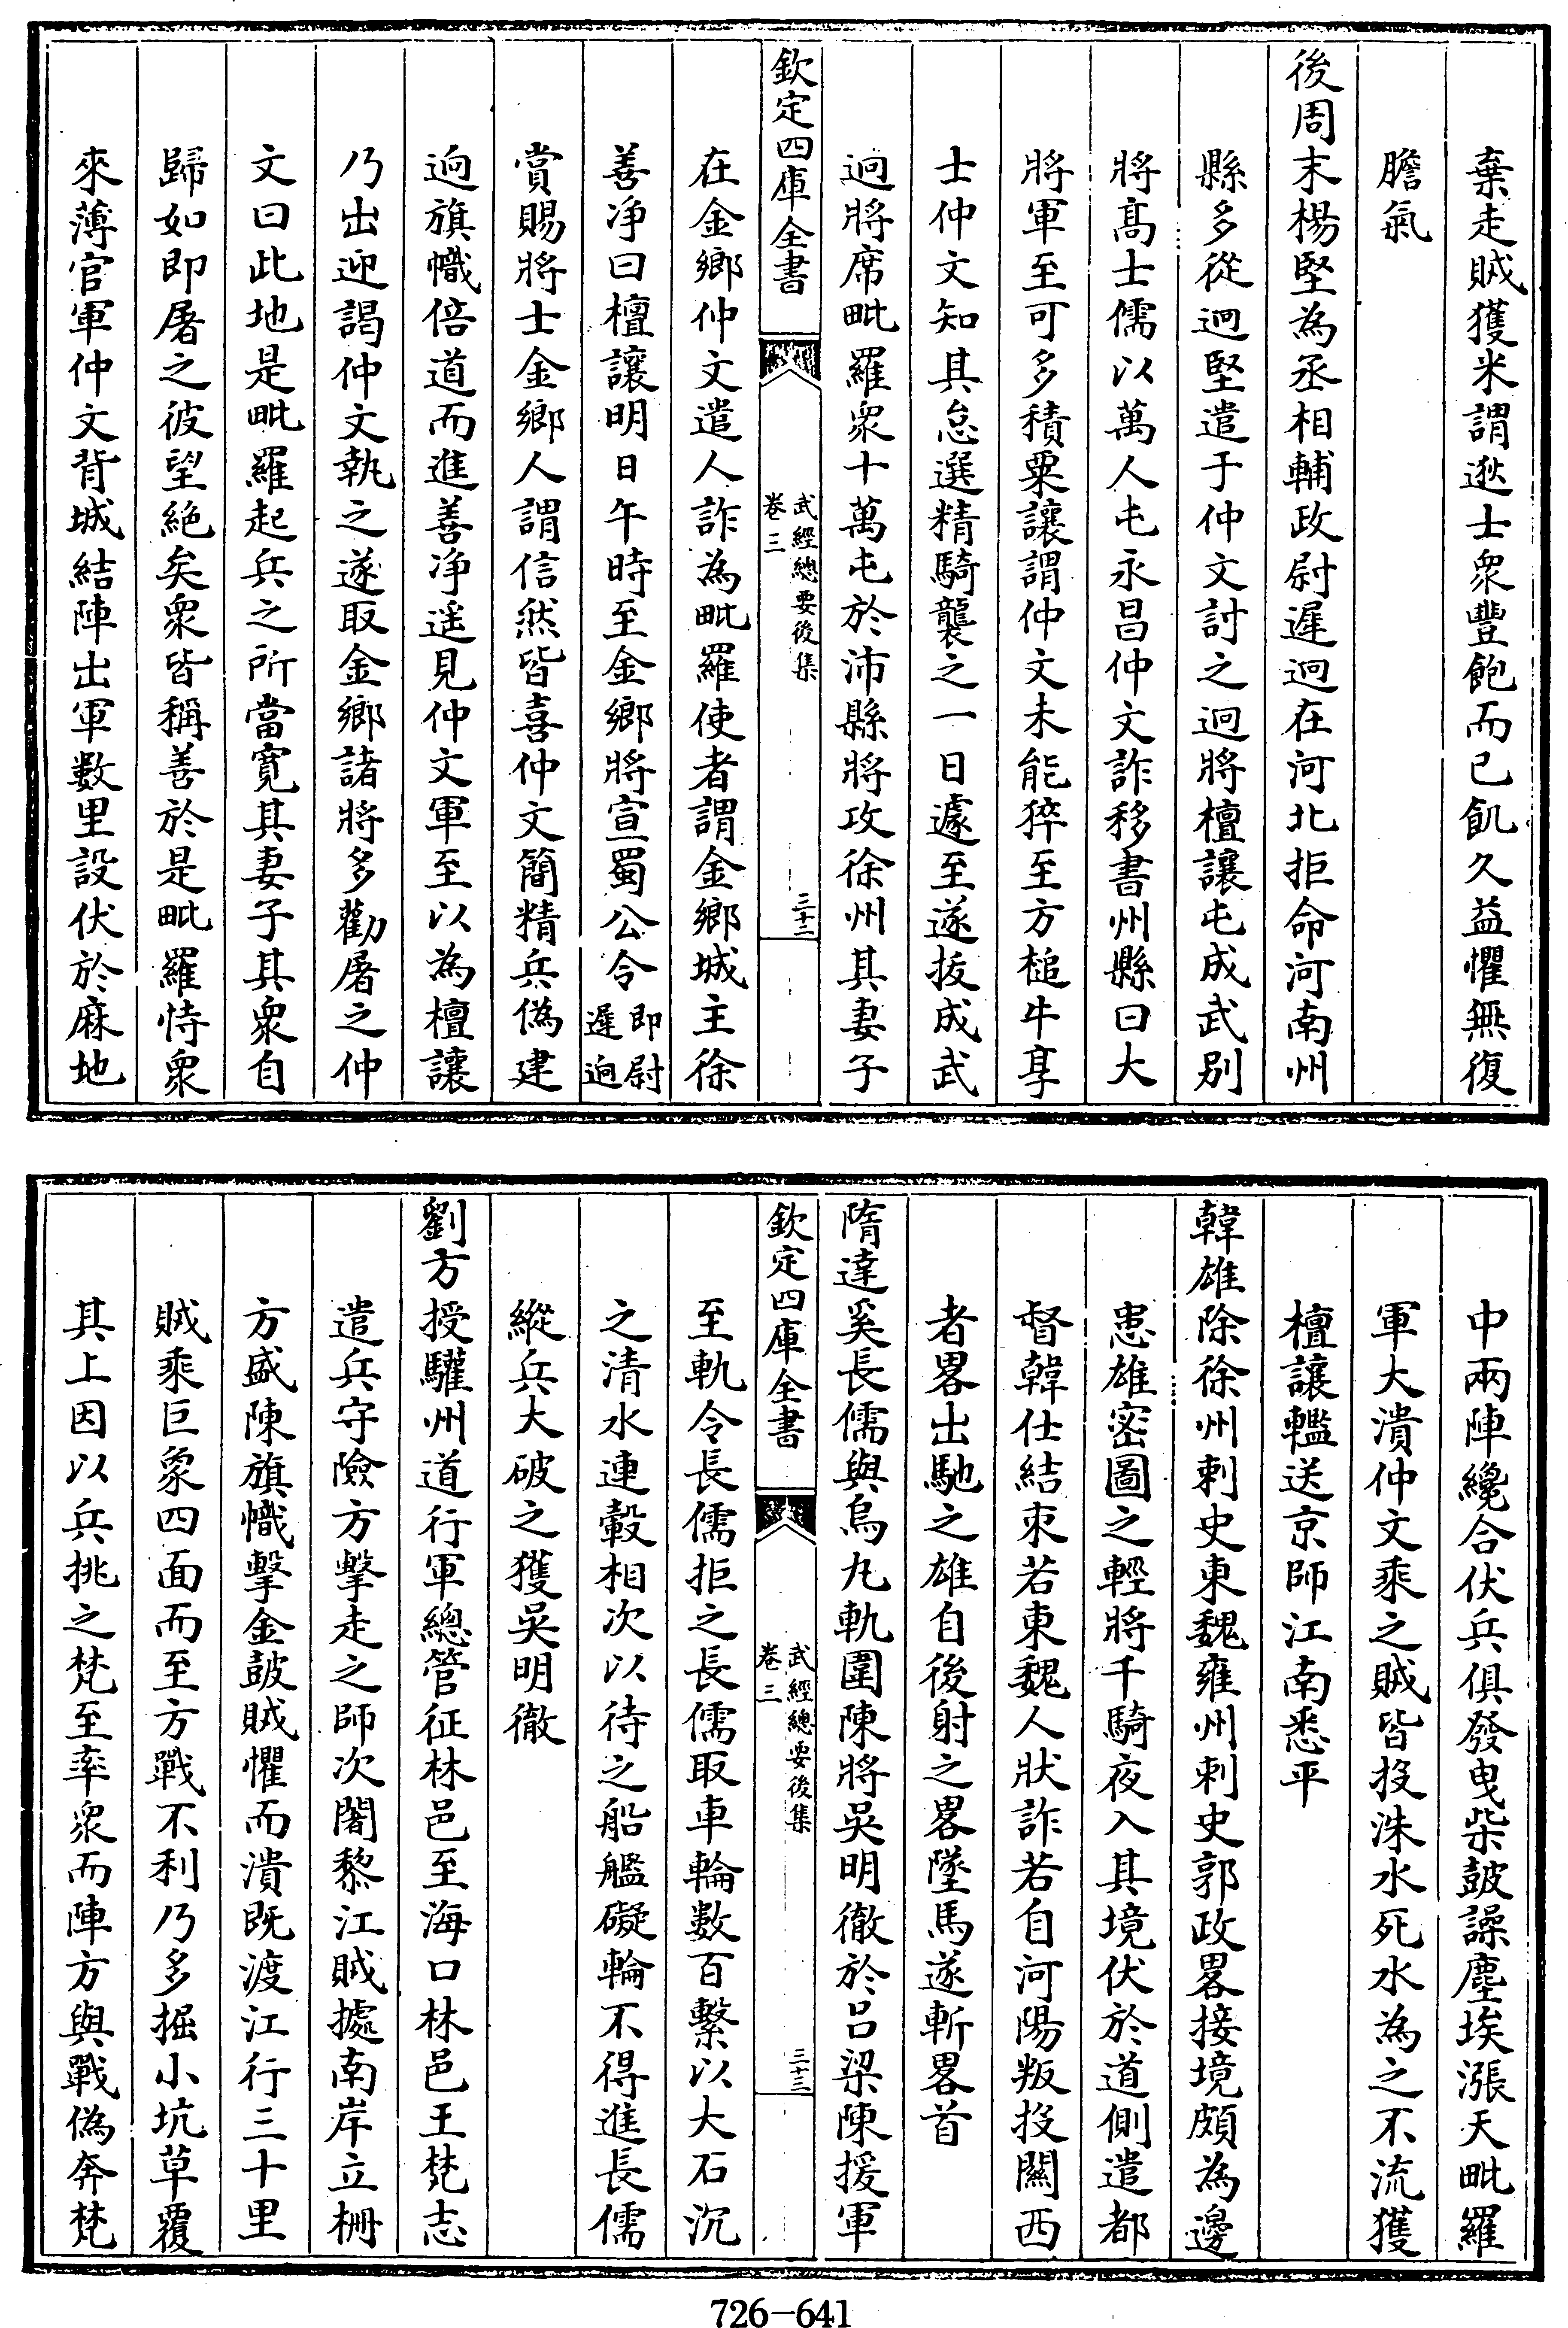 棄走賊獲米謂逖士衆豐飽而已飢久益懼無復
膽氣
後周末楊堅為丞相輔政尉遲迥在河北拒命河南州
縣多從迥堅遣于仲文討之迥將檀讓屯成武別
將髙士儒以萬人屯永昌仲文詐移書州縣曰大
將軍至可多積粟讓謂仲文未能猝至方槌牛享
士仲文知其怠選精騎襲之一日遽至遂拔成武
迥將席毗羅衆十萬屯於沛縣將攻徐州其妻子
欽定四庫全書
武經總要後集
卷三
三十二
在金鄉仲文遣人詐為毗羅使者謂金鄉城主徐
善净曰檀讓明日午時至金鄉將宣蜀公令即尉遲迥
賞賜將士金鄉人謂信然皆喜仲文簡精兵偽建
迥旗幟倍道而進善净遥見仲文軍至以為檀讓
乃出迎謁仲文執之遂取金鄉諸將多勸屠之仲
文曰此地是毗羅起兵之所當寛其妻子其衆自
歸如即屠之彼望絶矣衆皆稱善於是毗羅恃衆
來薄官軍仲文背城結陣出軍數里設伏於麻地
中兩陣纔合伏兵俱發曳柴鼓譟塵埃漲天毗羅
軍大潰仲文乘之賊皆投洙水死水為之不流獲
檀讓轞送京師江南悉平
韓雄除徐州刺史東魏雍州刺史郭政畧接境頗為邊
患雄密圖之輕將千騎夜入其境伏於道側遣都
督韓仕結束若東魏人狀詐若自河陽叛投闗西
者畧出馳之雄自後射之畧墜馬遂斬畧首
隋達奚長儒與烏丸軌圍陳將吳明徹於吕梁陳援軍
欽定四庫全書
武經總要後集
卷三
三十三
至軌令長儒拒之長儒取車輪數百繫以大石沉
之清水連轂相次以待之船艦礙輪不得進長儒
縱兵大破之獲吳明徹
劉方授驩州道行軍總管征林邑至海口林邑王梵志
遣兵守險方擊走之師次闍黎江賊據南岸立栅
方盛陳旗幟擊金鼓賊懼而潰既渡江行三十里
賊乘巨象四面而至方戰不利乃多掘小坑草覆
其上因以兵挑之梵至率衆而陣方與戰偽奔梵
726-641